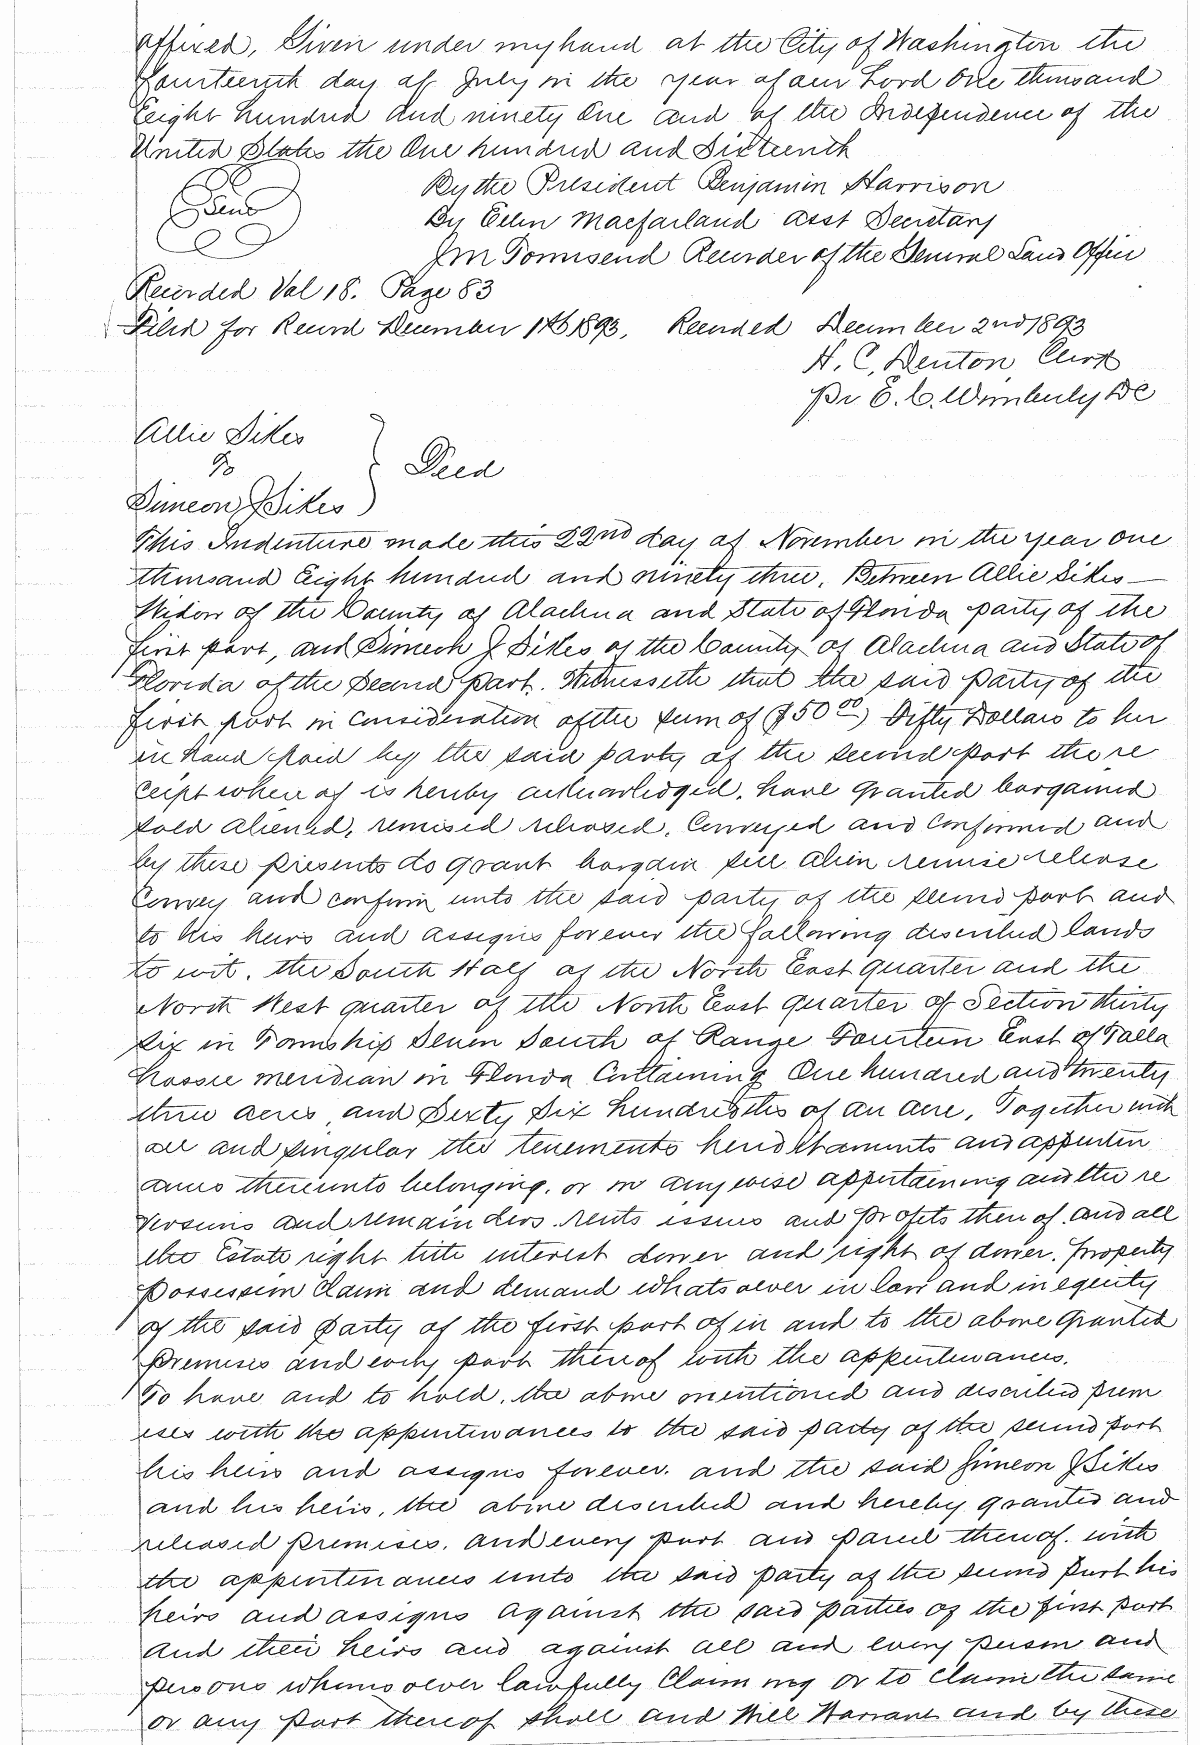 affixed, Given under my hand at the City of Washington the
fourteenth day of July in the year of our Lord One thousand
Eight hundred and ninety One and of the Independence of the
United States the One hundred and Sixteenth
Seal
By the President Benjamin Harrison
By Ellen Macfarland asst Secretary
J M Townsend Recorder of the General Land Office
Recorded Vol 18. Page 83
Filed for Record December 1st 1893, Recorded December 2nd 1893
H. C. Denton, Clerk
Pr E. C. Wimberly DC
Allie Sikes
To } Deed
Simeon J Sikes
This Indenture made this 22nd day of November in the year one
thousand Eight hundred and ninety three, Between Allie Sikes —
Widow of the County of Alachua and State of Florida party of the
first part, and Simeon J Sikes of the County of Alachua and State of
Florida of the Second part. Witnesseth that the said party of the
first part in consideration of the sum of ($50 00) Fifty Dollars to her
in hand paid by the said party of the second part the re
ceipt where of is hereby acknowledged, have granted bargained
sold aliened, remised released, Conveyed and Confirmed and
by these presents do grant bargain sell alien remise release
Convey and confirm unto the said party of the second part and
to his heirs and assigns forever the following described lands
to wit. the South Half of the North East quarter and the
North West quarter of the North East quarter of Section thirty
six in Township Seven South of Range Fourteen East of Talla
hassee meridian in Florida Containing One hundred and twenty
three acres, and Sixty Six hundredths of an acre, Together with
all and singular the tenements hereditaments and appurten
ances thereunto belonging, or in any wise appertaining and the re
versions and remainders rents issues and profits thereof. and all
the Estate right title interest dower and right of dower, property
possession Claim and demand whatsoever in law and in equity
of the said party of the first part of in and to the above granted
premises and every part thereof with the appurtenances.
To have and to hold, the above mentioned and described prem
ises with the appurtenances to the said party of the second part
his heirs and assigns forever. and the said Simeon J Sikes
and his heirs, the above described and hereby granted and
released premises, and every part and parcel thereof. with
the appurtenances unto the said party of the second part his
heirs and assigns against the said parties of the first part
And their heirs and against all and every person and
persons whomsoever lawfully Claim ing or to Claim the same
or any part thereof shall and Will Warrant and by these